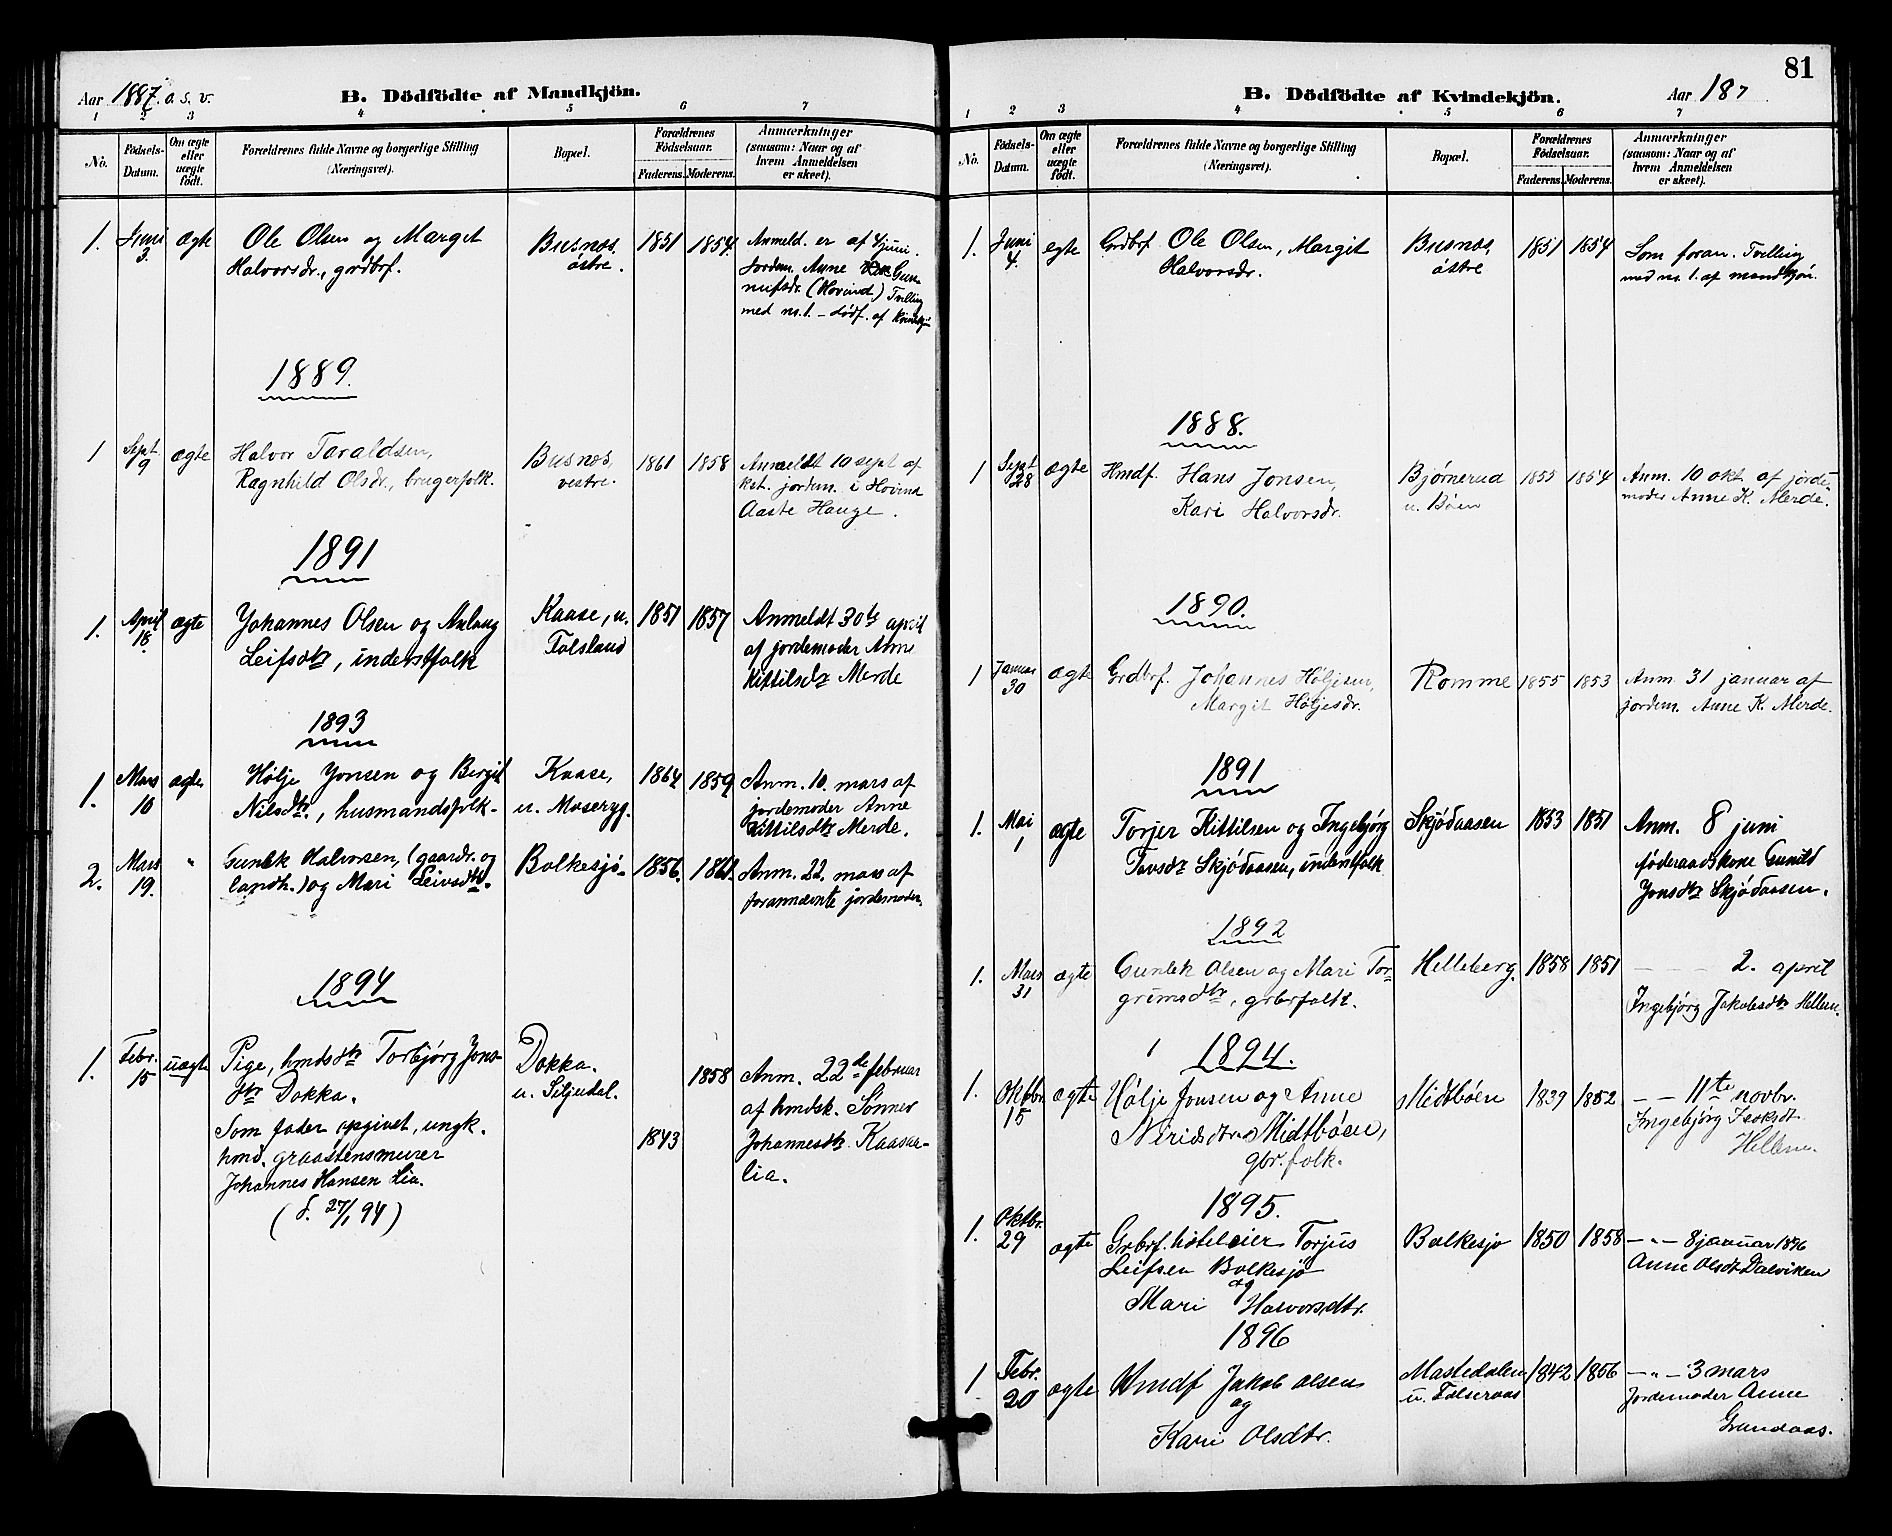 Aar 1887 o. s. v.
B. Dödfödte af Mandkjön.
1 2 3 4 5 6 7
No.
Födsels-Datum.
Om ægte eller uægte født.
Forældrenes fulde Navne og borgerlige Stilling (Næringsvei).
Bopæl.
Forældrenes Födselsaar.
Faderens. Moderens.
Anmærkninger (saasom: Naar og af hvem Anmeldelsen er skeet).
1. Juni 3. ægte Ole Olsen og Marget Busnes, 1851 1854. Anmeld. er af 4 juni.
Halvorsdr., grdbrf. östre. Jordem. Anne Gun-
nufsdr. (Hovind) Tvilling
med no. 1. – dödf. af Kvindekj
1889.
1 Sept. 9 ægte Halvor Taraldsen, Busnes, 1861 1858 Anmeldt 10 sept af
Ragnhild Olsdr., brugerfolk. vestre. kst. jordem. i Hovind
Aaste Hauge.
1891
1. April 18. ægte Johannes Olsen og Aslaug Kaase, u. 1851 1857 Anmeldt 30te april
Leifsdtr, inderstfolk Folsland af jordemoder Anne
Kittilsdtr Merde
1893
1. Mars 10 ægte Hølje Jonsen og Bergit Kaase, 1864 1859 Anm. 10. mars af
Nilsdtr., husmandsfolk. u. Moseryg. jordemoder Anne
Kittilsdtr Merde.
2. Mars 19. " Gunlek Halvorsen, (gaardr. og Bolkesjø. 1856. Anm. 22. mars af
landh.) og Mari Leivsdtr. forannævnte jordemoder.
1894
1. Febr. 15 uægte Pige, hmdsdtr Torbjørg Jons- Dokka. 1858 Anm. 22de februar
dtr Dokka. u. Siljudal. af hmdsk. Sønner
Som fader opgivet, ungk. 1843 Johannesdtr Kaasa-
hmd. graastensmurer lia.
Johannes Hansen Lia.
(d. 27/1 94)
81
B. Dödfödte af Kvindekjön.
Aar 187
1 2 3 4 5 6 7
No.
Födsels-Datum.
Om ægte eller uægte født.
Forældrenes fulde Navne og borgerlige Stilling (Næringsvei).
Bopæl.
Forældrenes Födselsaar.
Faderens. Moderens.
Anmærkninger (saasom: Naar og af hvem Anmeldelsen er skeet).
1. Juni 4. egte Grdbrf. Ole Olsen, Margit Busnes, 1851 1854 Som foran. Tvilling
Halvorsdr. östre med no. 1. af mandkjön.
1888.
1 Sept 28 ægte Hmdf. Hans Jonsen, Bjørnerud 1855 1854 Anm. 10 okt af jorde-
Kari Halvorsdr. u. Bøen moder Anne K. Merde.
1890.
1 Januar 30 ægte Grdbrf. Johannes Høljesen, Romme 1855 1853 Anm. 31 januar af
Margit Høljesdr. jordem. Anne K. Merde.
1891
1. Mai 1 ægte Torjer Kittilsen og Ingebjørg Skjödaasen 1853 1851 Anm. 8 juni
Tovsdtr Skjödaasen, inderstfolk føderaadskone Gunild
Jonsdtr Skjödaasen.
1892
1. Mars 31 ægte Gunlek Olsen og Mari Tor- Helleberg. 1858 1851 — — 2. april
grimsdtr, grbrfolk. Ingebjørg Jakobsdtr Hellem.
1894.
1. Oktbr. 15 ægte Hølje Jonsen og Anne Midtbøen 1839 1852 – – 11te novbr.
Neridsdtr Midtbøen, Ingebjørg
gbr.folk. Hellem.
1895.
1. Oktbr. 29 ægte Grbrf. hoteleier Torjus Bolkesjø 1850 1858 – " – 8 januar 1896
Leifsen Bolkesjø Anne Olsdtr Dalviken
og
Mari Halvorsdtr.
1896
1 Febr. 20 ægte Hmdf Jakob Olsen Mastedalen 1842 1856 – " – 3 mars
og u. Folseraas Jordemoder Anne
Kari Olsdtr. Grundaas.